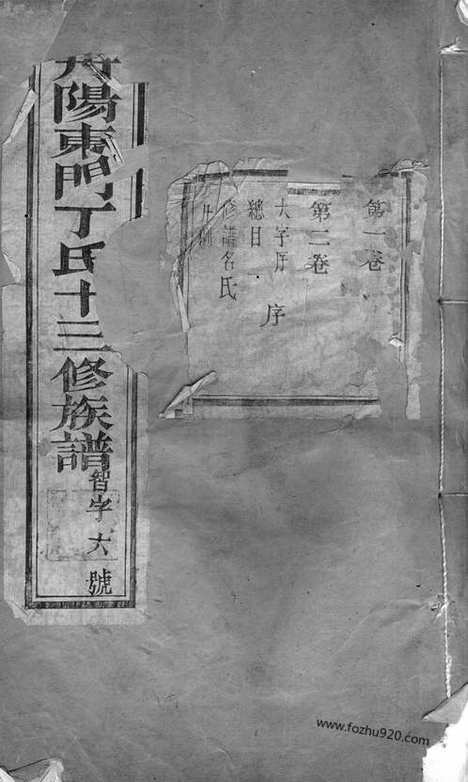 丹陽東門丁氏十三修族譜
智字六號
第一卷
第二卷
大字序 序
總目
修譜名氏
凡例
www.fozhu920.com